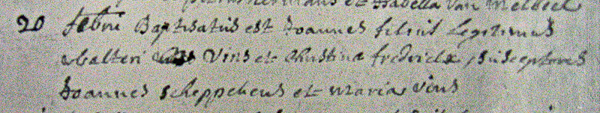 et Isabella van Melbeel
20 febrii Baptisatus est Joannes filius legitimus
walteri Vins et Christina fredericx, susceptores
Joannes scheppehens et maria vins